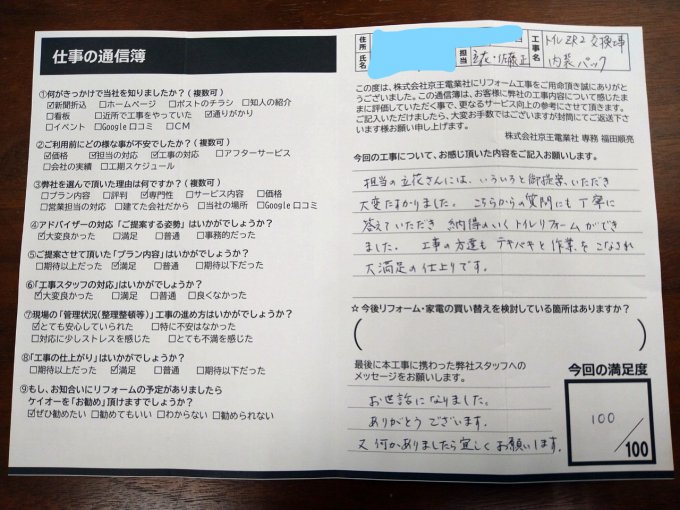 仕事の通信簿
①何がきっかけで当社を知りましたか?(複数可)
☑新聞折込 □ホームページ □ポストのチラシ □知人の紹介
□看板 □近所で工事をやっていた ☑通りがかり
□イベント □Google口コミ □CM
②ご利用前にどの様な事が不安でしたか?(複数可)
☑価格 ☑担当の対応 ☑工事の対応 □アフターサービス
□会社の実績 □工期スケジュール
③弊社を選んで頂いた理由は何ですか?(複数可)
□プラン内容 □評判 ☑専門性 □サービス内容 □価格
□営業担当の対応 □建てた会社だから □当社の場所 □Google口コミ
④アドバイザーの対応「ご提案する姿勢」はいかがでしょうか?
☑大変良かった □満足 □普通 □事務的だった
⑤ご提案させて頂いた「プラン内容」はいかがでしょうか?
□期待以上だった ☑満足 □普通 □期待以下だった
⑥「工事スタッフの対応」はいかがでしょうか?
☑大変良かった □満足 □普通 □良くなかった
⑦現場の「管理状況(整理整頓等)」工事の進め方はいかがでしょうか?
☑とても安心していられた □特に不安はなかった
□対応に少しストレスを感じた □とても不満を感じた
⑧「工事の仕上がり」はいかがでしょうか?
☑期待以上だった □満足 □普通 □期待以下だった
⑨もし、お知合いにリフォームの予定がありましたら
ケイオーを「お勧め」頂けますでしょうか?
☑ぜひ勧めたい □勧めてもいい □わからない □勧められない
住所
氏名
担当
立花・佐藤正
工事名
トイレZR2交換工事
内装パック
この度は、株式会社京王電業社にリフォーム工事をご用命頂き誠にありがと
うございました。この通信簿は、お客様に弊社の工事内容について感じたま
まに評価していただく事で、更なるサービス向上の参考にさせて頂きます。
ご記入いただけましたら、大変お手数ではございますが封筒にてご返送下さ
います様お願い申し上げます。
株式会社京王電業社 専務 福田順亮
今回の工事について、お感じ頂いた内容をご記入お願いします。
担当の立花さんには、いろいろと御提案いただき
大変たすかりました。こちらからの質問にも丁寧に
答えていただき 納得のいくトイレリフォームができ
ました。 工事の方達もテキパキと作業をこなされ
大満足の仕上りです。
☆今後リフォーム・家電の買い替えを検討している箇所はありますか?
( )
最後に本工事に携わった弊社スタッフへの
メッセージをお願いします。
お世話になりました。
ありがとうございます。
又何かありましたら宜しくお願いします。
今回の満足度
100
/100